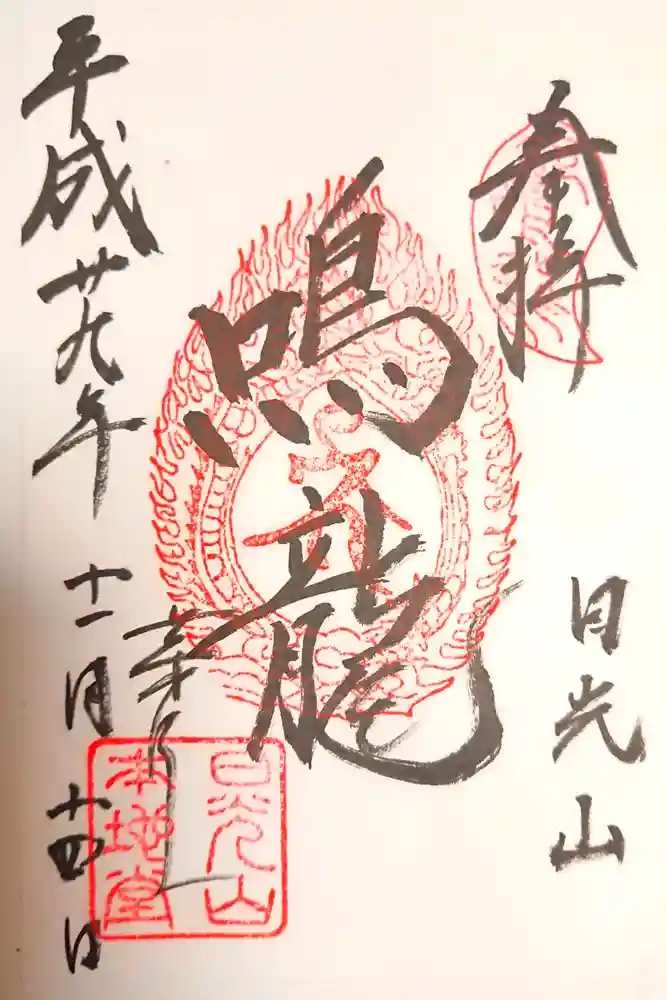 奉拝
日光山
鳴龍
薬師
平成廿九年 十一月 十四日
日光山
本地堂